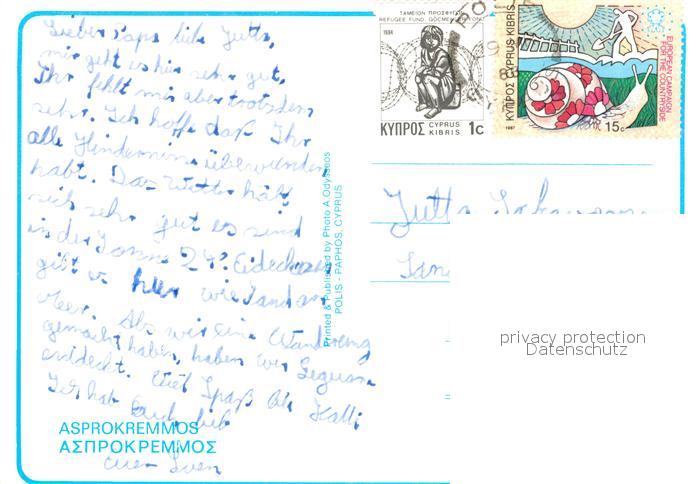 Lieber Papa liebe Jutta,
mir geht es hier sehr gut,
Ihr fehlt mir aber trotzdem
sehr. Ich hoffe daß Ihr
alle Hindernisse überwunden
habt. Das Wetter hält
sich sehr gut es sind
in der Sonne 24° Eidechsen
gibt es hier wie Sand am
Meer. Als wir eine Wanderung
gemacht haben, haben wir
entdeckt. Viel Spaß
Ich hab Euch lieb
euer Sven
ASPROKREMMOS
ΑΣΠΡΟΚΡΕΜΜΟΣ
Printed & Published by Photo A. Odysseos
POLIS - PAPHOS, CYPRUS
ΤΑΜΕΙΟΝ ΠΡΟΣΦΥΓΩΝ
REFUGEE FUND GÖÇMENLER FONU
1984
ΚΥΠΡΟΣ CYPRUS KIBRIS 1c
ΚΥΠΡΟΣ CYPRUS KIBRIS
EUROPEAN CAMPAIGN
FOR THE COUNTRYSIDE
1987
15c
Jutta
privacy protection
Datenschutz